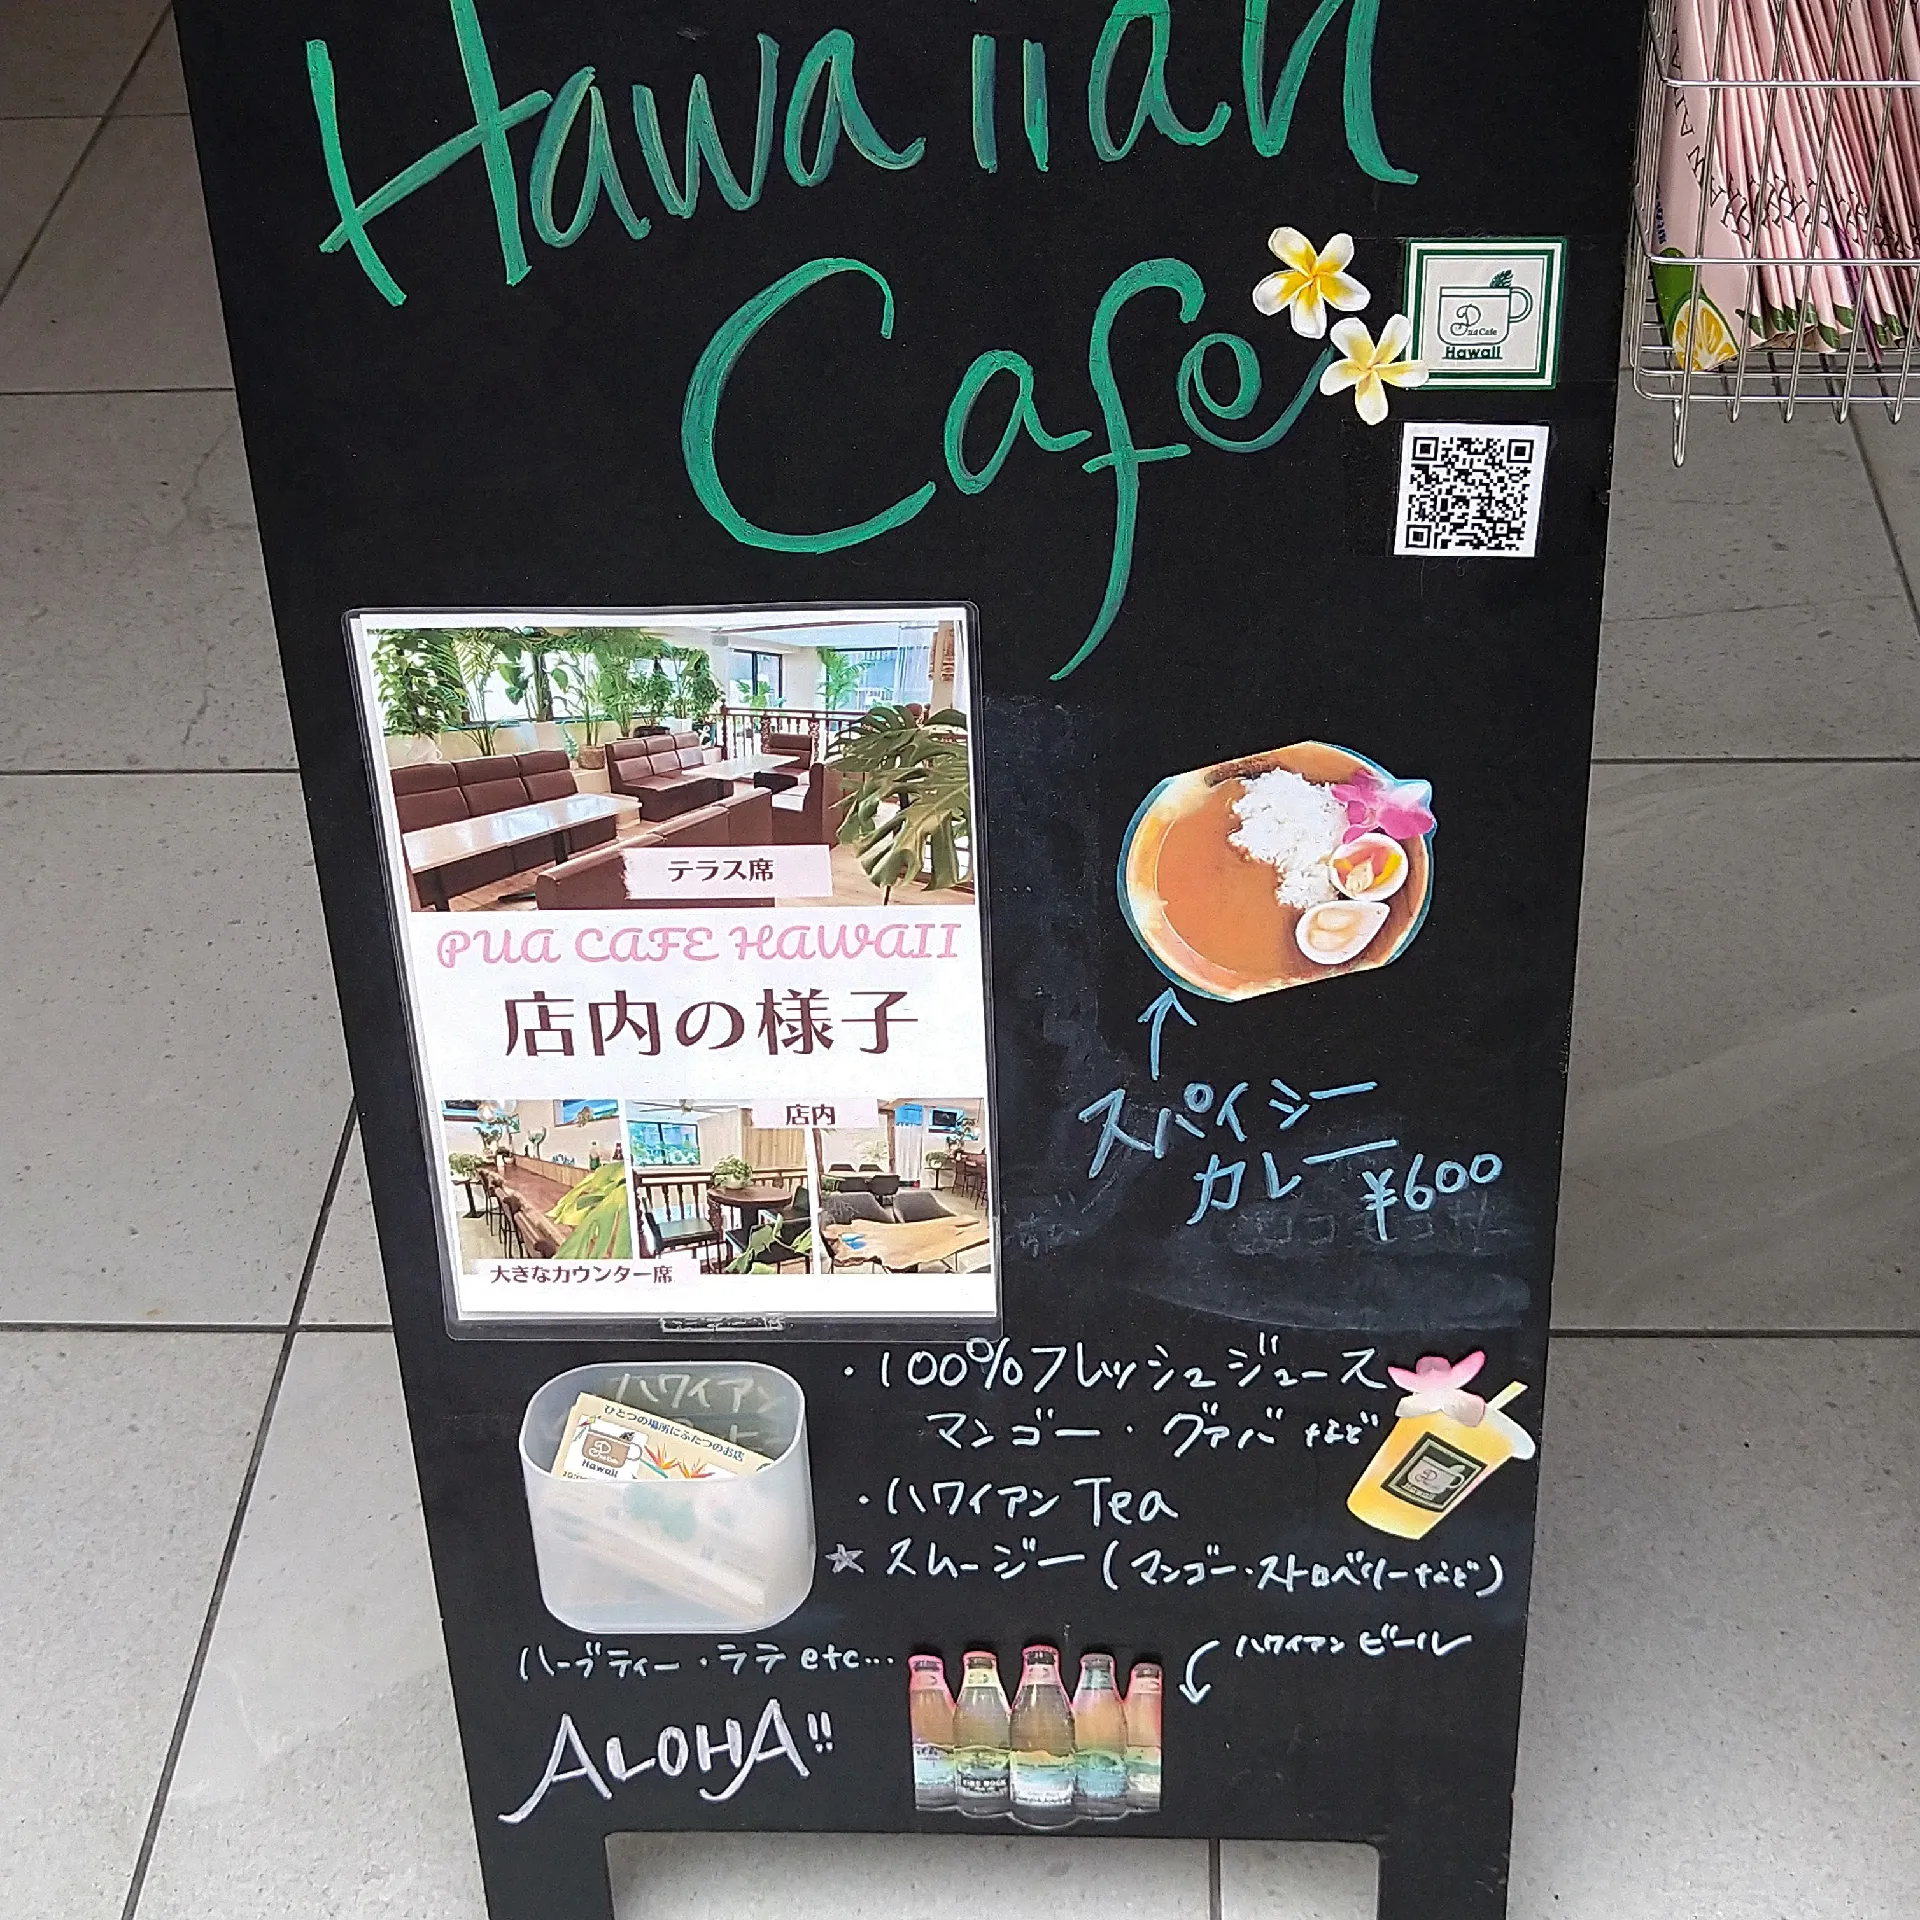 Hawaiian
Cafe
Pua Cafe
Hawaii
テラス席
PUA CAFE HAWAII
店内の様子
店内
大きなカウンター席
スパイシー
カレー ¥600
・100%フレッシュジュース
マンゴー・グァバなど
・ハワイアンTea
☆スムージー(マンゴー・ストロベリーなど)
ハーブティー・ラテetc...
ハワイアンビール
ALOHA!!
ハワイアン
ひとつの場所にふたつのお店
Hawaii
Hawaii